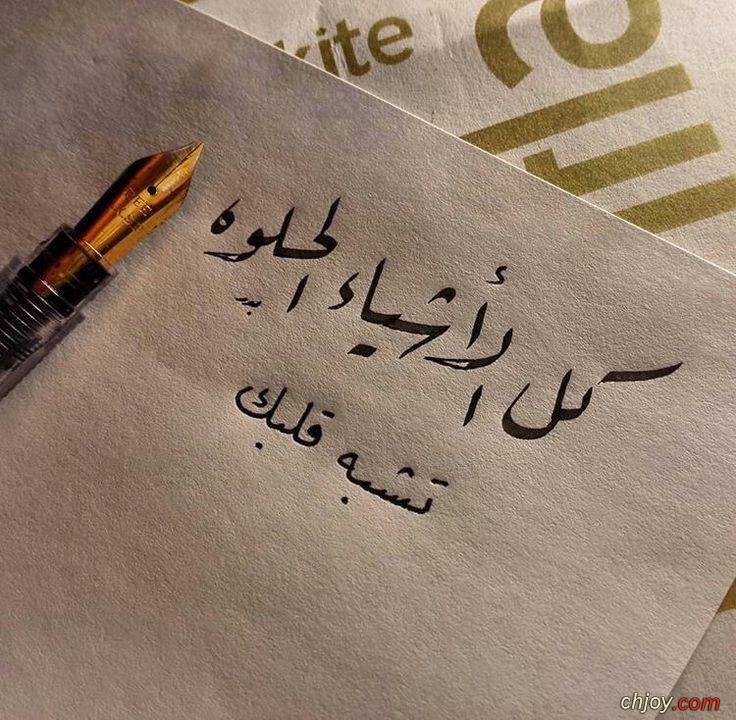 kite
كل الأشياء الحلوه
بدر
تشبه قلبك
chjoy.com